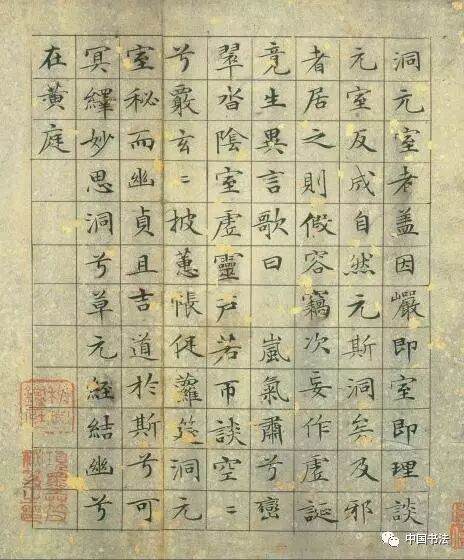 洞元室者盖因巖即室即理談
元室反成自然元斯洞矣及邪
者居之則假容竊次妄作虛誕
竟生異言歌曰 嵐氣肅兮巒
翠沓陰室虛靈户若帀談空〻
兮覈玄〻披蕙帳促蘿筵洞元
室秘而幽貞且吉道於斯兮可
冥繹妙思洞兮草元經結幽兮
在黄庭
中国书法